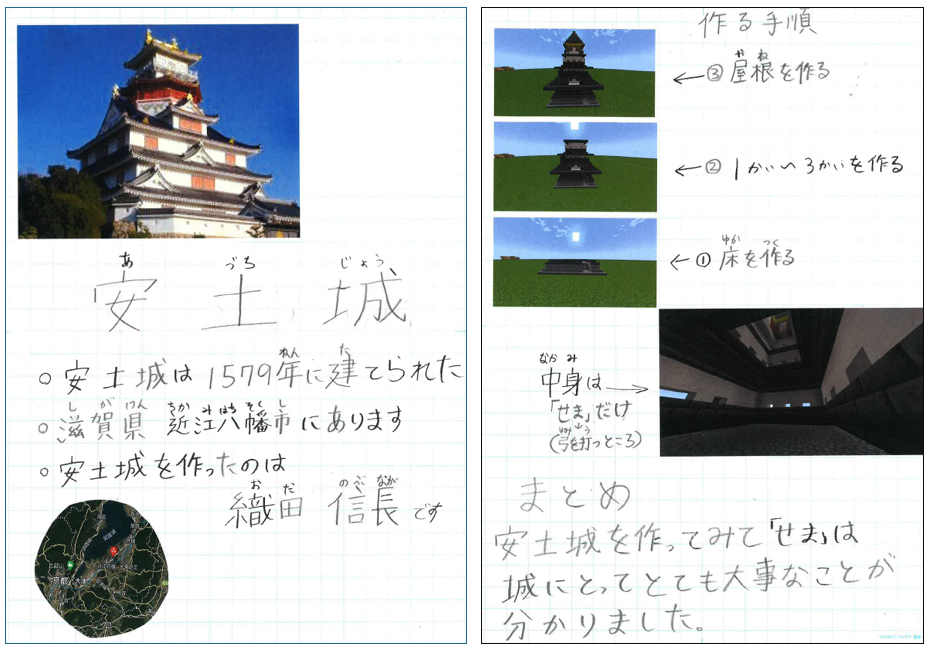 安土城
あづちじょう
○ 安土城は1579年に建てられた
ねん た
○ 滋賀県 近江八幡市にあります
しがけん
○ 安土城を作ったのは
織田 信長です
おだ のぶなが
作る手順
←③屋根を作る
やね
←②1かい〜3かいを作る
←①床を作る
ゆか つく
中身は→
なかみ
「せま」だけ
(弓を打つところ)
まとめ
安土城を作ってみて「せま」は
城にとってとても大事なことが
分かりました。